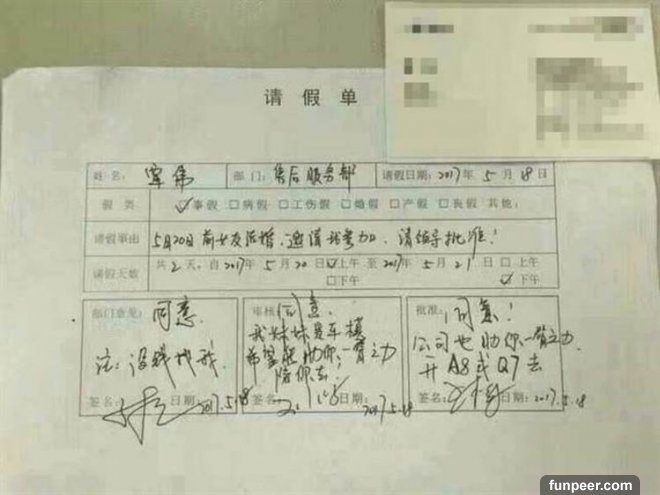 请假单
姓名: 军伟 部门: 售后服务部 请假日期: 2017年5月18日
假类 ☑事假 □病假 □工伤假 □婚假 □产假 □丧假 其他:
请假事由 5月20日前女友结婚,邀请我参加,请领导批准!
请假天数 共2天,自2017年5月20日☑上午 至2017年5月21日□上午
□下午 ☑下午
部门意见: 同意.
注: 没钱找我.
签名: 日期: 2017.5.18
审核: 同意.
我妹妹是车模
希望能助你一臂之力
陪你去!
签名: 日期: 2017.5.18
批准: 同意!
公司也助你一臂之力
开A8或Q7去
签名: 日期: 2017.5.18
funpeer.com